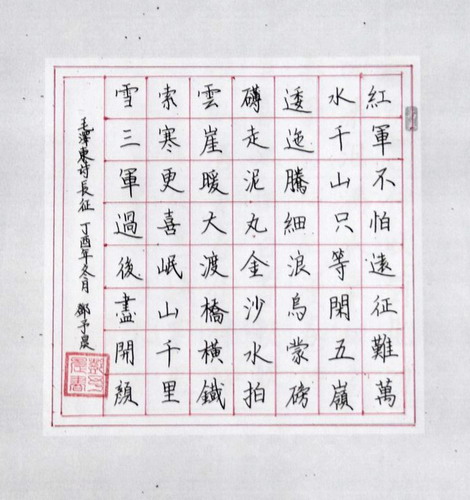 紅軍不怕遠征難萬
水千山只等閑五嶺
逶迤騰細浪烏蒙磅
礴走泥丸金沙水拍
雲崖暖大渡橋橫鐵
索寒更喜岷山千里
雪三軍過後盡開顏
毛澤東诗長征 丁酉年冬月